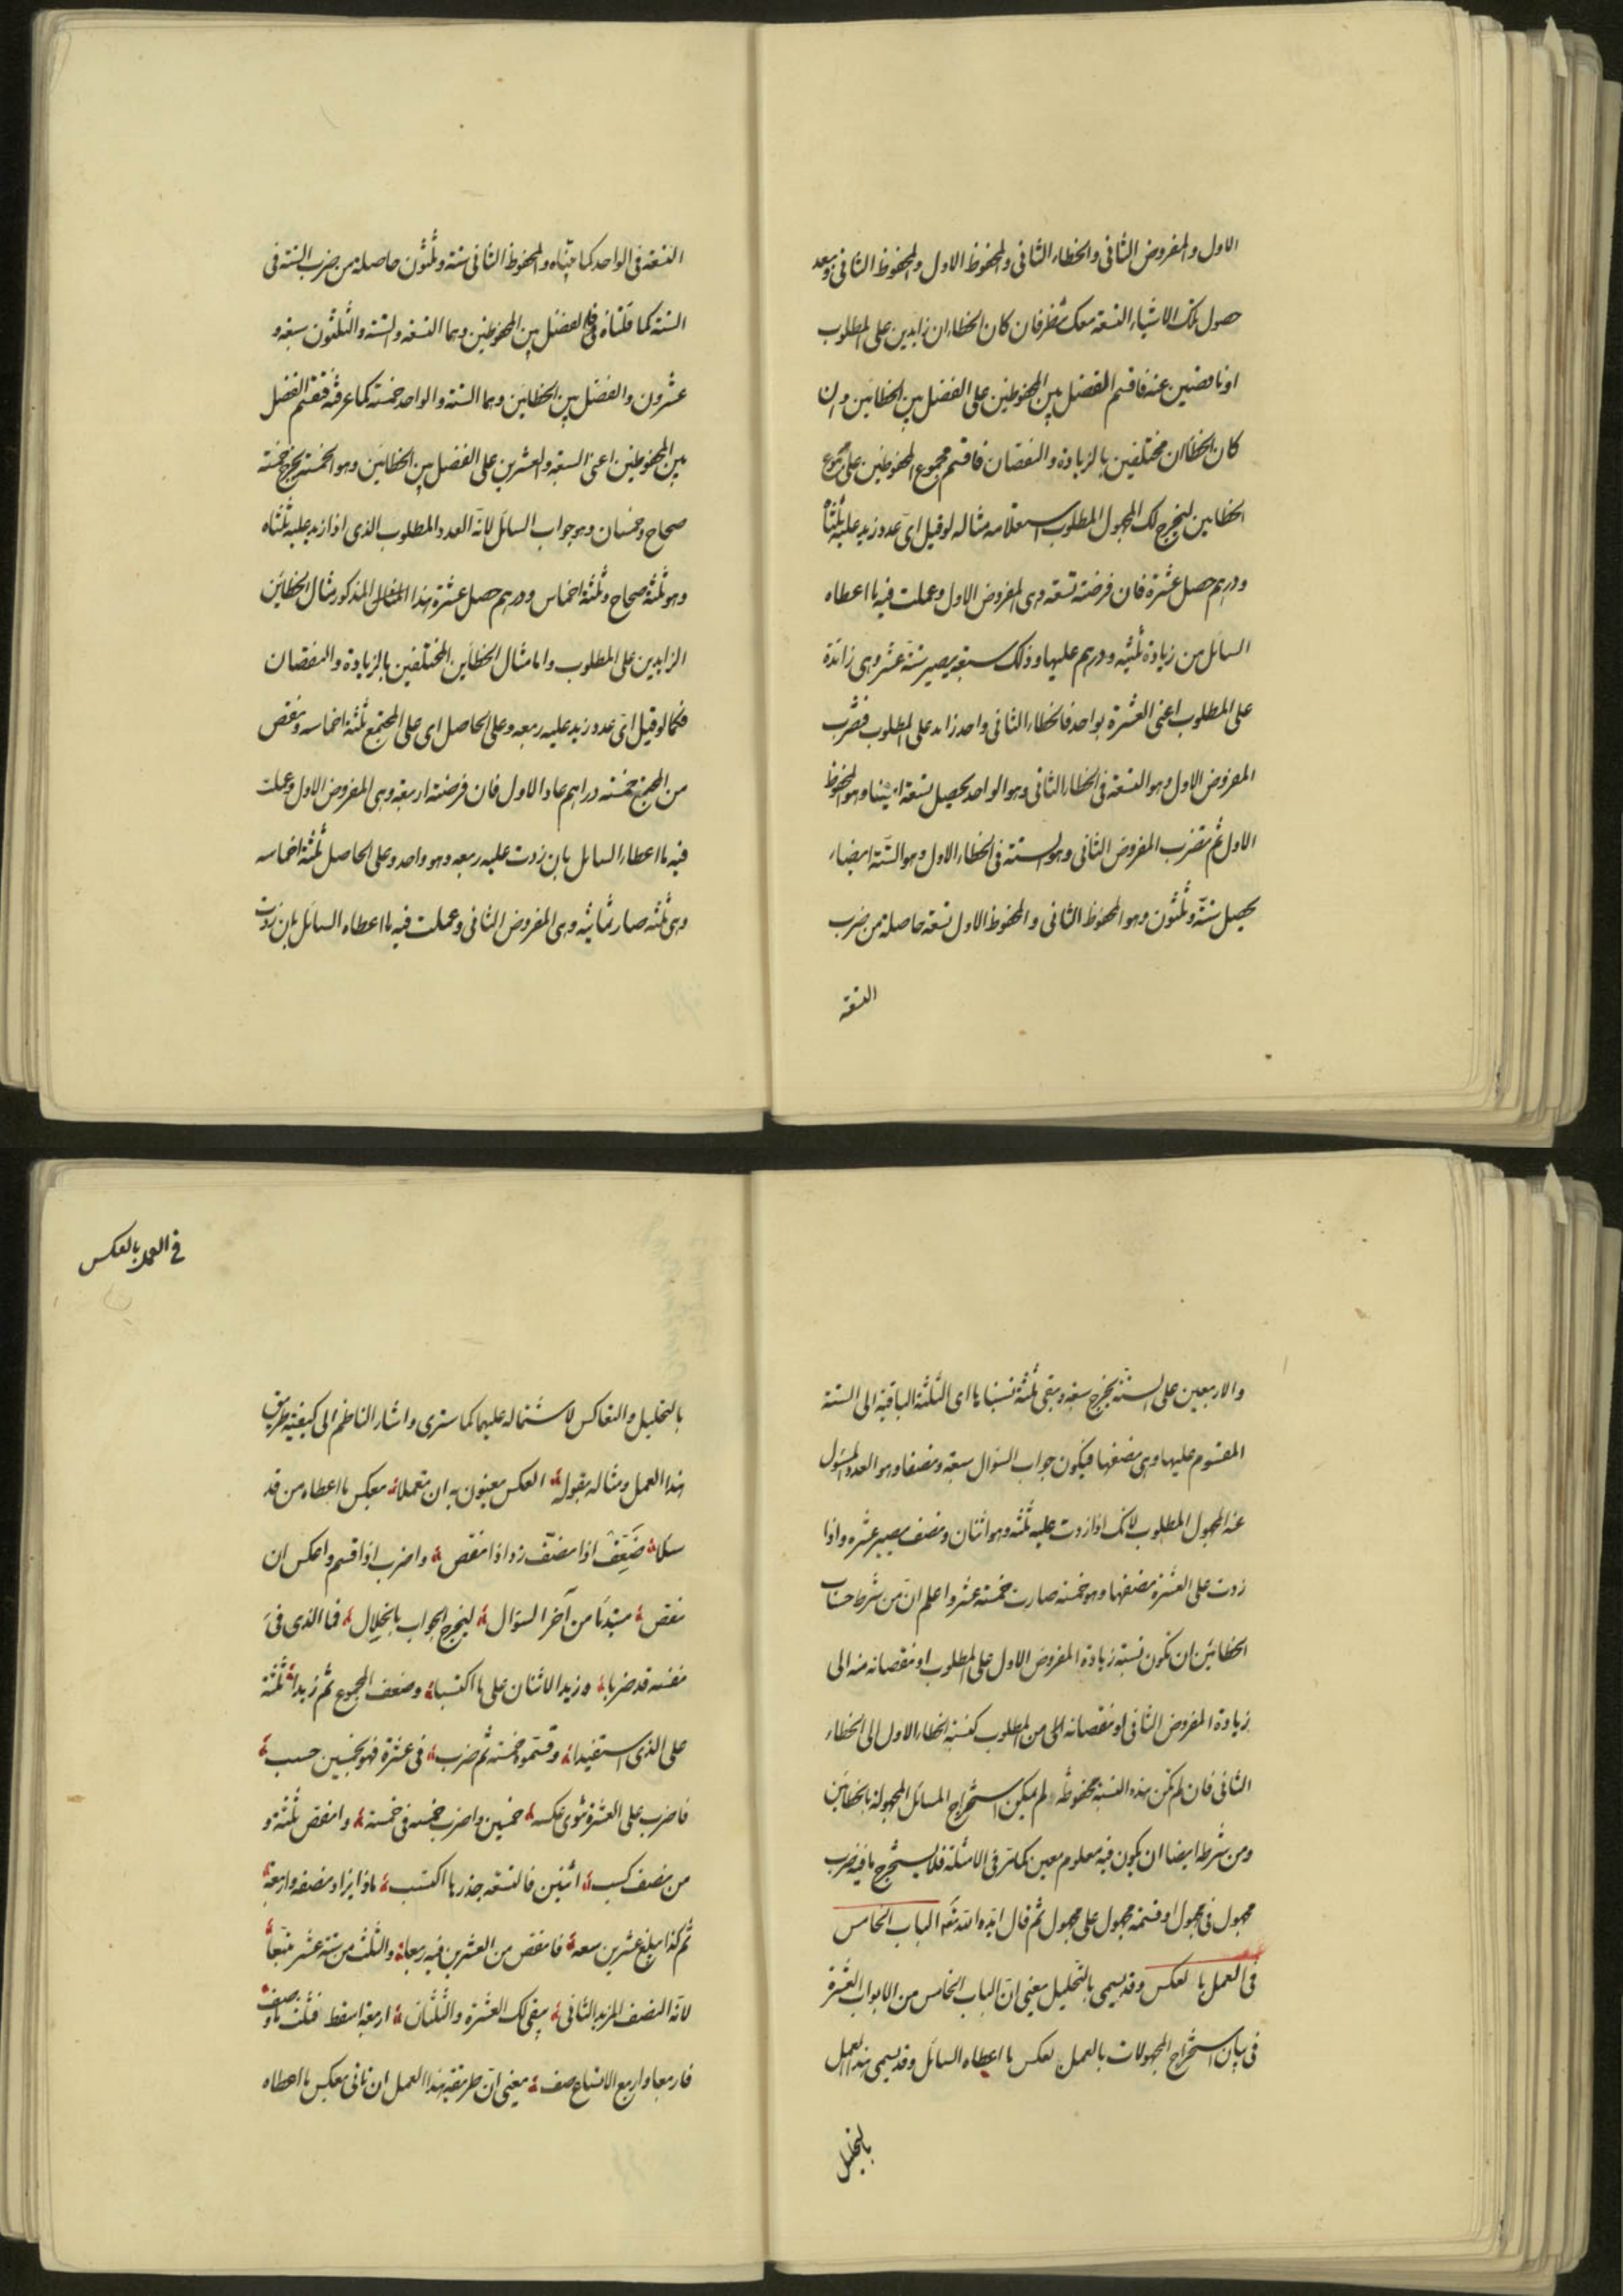 الاول والمفروض الثانی والخطاء الثانی والمحفوظ الاول والمحفوظ الثانی وبعد
حصول تلک الاشیاء التسعة معک تنظر فان کان الخطاءان زایدین علی المطلوب
او ناقصین عنه فاقسم الفضل بین المحفوظین علی الفضل بین الخطائین وان
کان الخطاان مختلفین بالزیادة والنقصان فاقسم مجموع المحفوظین علی مجموع
الخطاین لیخرج لک المجهول المطلوب استعلامه مثاله لو قیل ای عدد زید علیه ثلثاه
ودرهم حصل عشرة فان فرضته تسعة وهی المفروض الاول وعملت فیه ما اعطاه
السائل من زیادة ثلثیه ودرهم علیها وذلک سبعة یصیر ستة عشر وهی زائدة
علی المطلوب اعنی العشرة بواحد فالخطاء الثانی واحد زاید علی المطلوب فتضرب
المفروض الاول وهو التسعة فی الخطاء الثانی وهو الواحد یحصل تسعة ایضا وهو المحفوظ
الاول ثم تضرب المفروض الثانی وهو الستة فی الخطاء الاول وهو الستة ایضا
یحصل ستة وثلثون وهو المحفوظ الثانی والمحفوظ الاول تسعة حاصلة من ضرب
التسعة
التسعة فی الواحد کما بیناه والمحفوظ الثانی ستة وثلثون حاصلة من ضرب الستة فی
الستة کما قلناه فالفضل بین المحفوظین وهما التسعة والستة والثلثون سبعة و
عشرون والفضل بین الخطاین وهما الستة والواحد خمسة کما عرفته فقسم الفضل
بین المحفوظین اعنی السبعة والعشرین علی الفضل بین الخطاین وهو الخمسة یخرج خمسة
صحاح وخمسان وهو جواب السائل لانه العدد المطلوب الذی اذا زید علیه ثلثاه
وهو ثلثة صحاح وثلثة اخماس ودرهم حصل عشرة هذا المثال المذکور مثال الخطاین
الزایدین علی المطلوب واما مثال الخطاین المختلفین بالزیادة والنقصان
فکما لو قیل ای عدد زید علیه ربعه وعلی الحاصل ای علی المجتمع ثلثة اخماسه ونقص
من المجتمع خمسة دراهم عاد الاول فان فرضته اربعة وهی المفروض الاول وعملت
فیه ما اعطاه السائل بان زدت علیه ربعه وهو واحد وعلی الحاصل ثلثة اخماسه
وهی ثلثة صار ثمانیة وهی المفروض الثانی وعملت فیه ما اعطاه السائل بان زدت
والاربعین علی الستة یخرج سبعة ویبقی ثلثة نسبناها ای الثلثة الباقیة الی الستة
المقسوم علیها وهی نصفها فیکون جواب السؤال سبعة ونصفا وهو العدد المسئول
عنه المجهول المطلوب لانک اذا زدت علیه ثلثه وهو اثنان ونصف یصیر عشرة واذا
زدت علی العشرة نصفها وهو خمسة صارت خمسة عشر واعلم ان من شرط حساب
الخطائین ان تکون نسبة زیادة المفروض الاول علی المطلوب او نقصانه منه الی
زیادة المفروض الثانی او نقصانه من المطلوب کنسبة الخطاء الاول الی الخطاء
الثانی فان لم تکن هذه النسبة محفوظة لم یمکن استخراج المسائل المجهولة بالخطاین
ومن شرطه ایضا ان یکون فیه معلوم معین کما مر فی الامثلة فلا یستخرج ما فیه ضرب
مجهول فی مجهول او قسمة مجهول علی مجهول ثم قال ایده الله تعالی الباب الخامس
فی العمل بالعکس وقد یسمی بالتحلیل یعنی ان الباب الخامس من الابواب العشرة
فی بیان استخراج المجهولات بالعمل بعکس ما اعطاه السائل وقد یسمی هذا العمل
بالتحلیل
فی العمل بالعکس
بالتحلیل والتعاکس لاشتماله علیهما کما ستری واشار الناظم الی کیفیة طریق
هذا العمل ومثاله بقوله العکس معنون به ان تعملا بعکس ما اعطاه من قد
سئلا ضَعِّف اذا نصّف زد اذا نقص واضرب اذا قسم واعکس ان
نقص مبتدئا من آخر السؤال لیخرج الجواب بانحلال فما الذی فی
نفسه قد ضربا وزید الاثنان علی ما اکتسبا وضعف المجموع ثم زیدا ثلثة
علی الذی استفیدا وقسموه خمسة ثم ضرب فی عشرة فهو بخمسین حسب
فاضرب علی العشرة خمسین واضرب خمسة فی خمسة وانقص ثلثة و
من نصف کسب اثنین فالتسعة جذر ما اکتسب ماذا یزاد نصفه واربعة
ثم کذا یبلغ عشرین سعه فانقص من العشرین فیه ربعا والثلث من ستة عشر تبعا
لانه النصف المزید الثانی یبقی لک العشرة والثلثان اربعة اسقط فثلث
فاربعا واربع الاتساع صف یعنی ان طریقة هذا العمل ان تاتی بعکس ما اعطاه